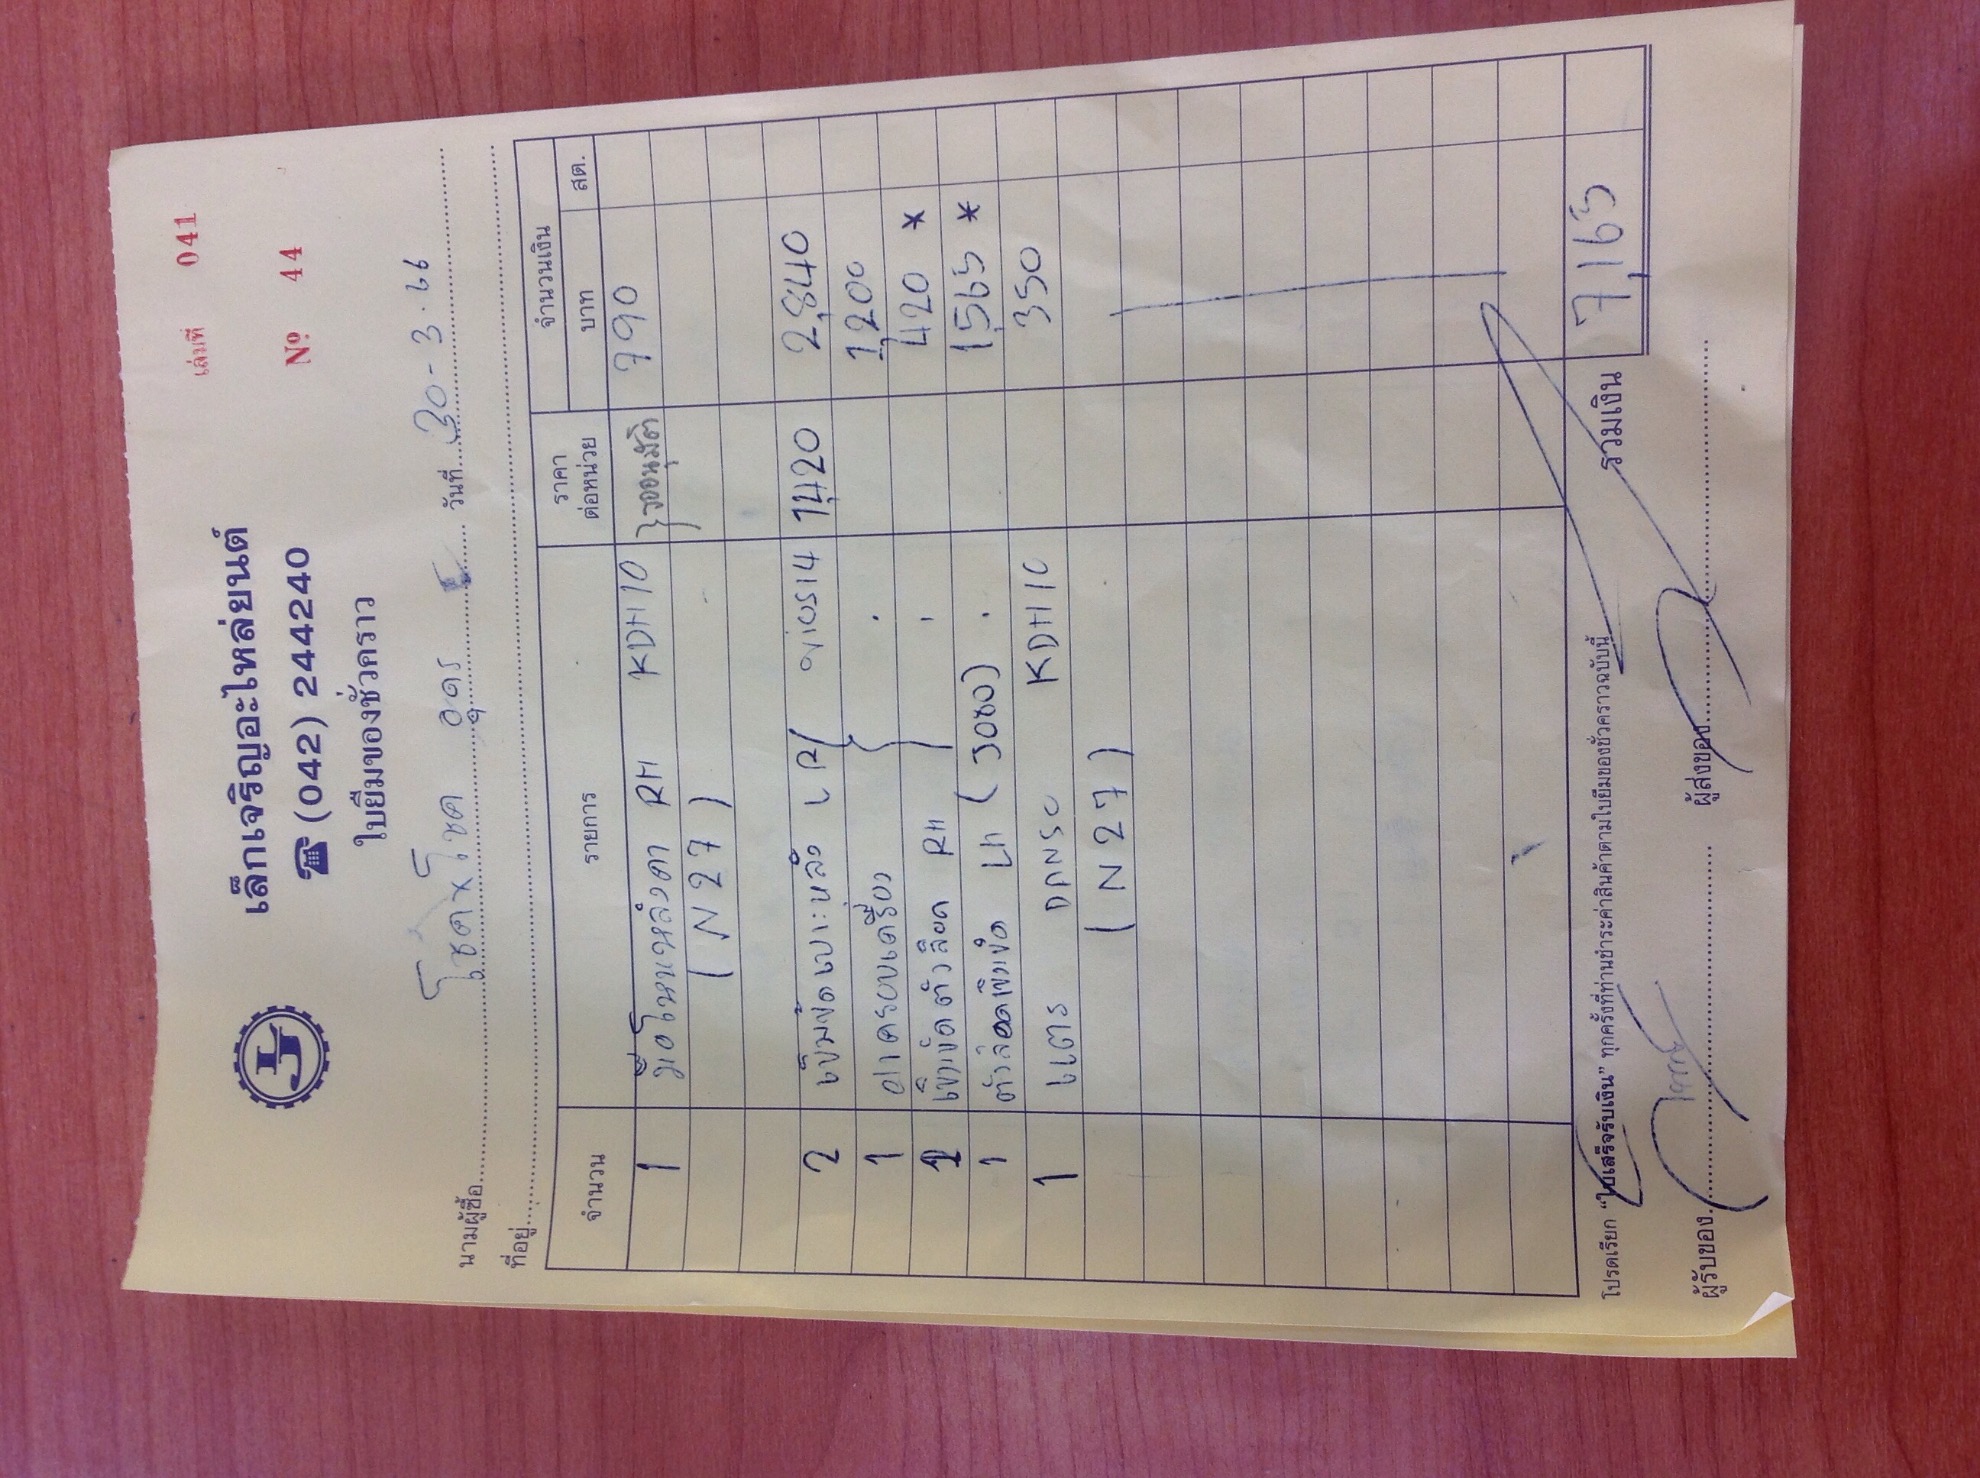 เล่มที่ 041
เล็กเจริญอะไหล่ยนต์
☎ (042) 244240
Nº 44
ใบยืมของชั่วคราว
นามผู้ซื้อ โชค x โชค อุดร วันที่ 30-3-66
ที่อยู่
จำนวน รายการ ราคาต่อหน่วย จำนวนเงิน
บาท สต.
1 RH KDH 10 } รออนุมัติ 790
(N27)
2 LR vios14 1,420 2,840
1 ฝาครอบเครื่อง 1,200
1 RH 420 *
1 LH (3080) 1,565 *
1 แตร DANSO KDH 10 350
(N27)
โปรดเรียก "ใบเสร็จรับเงิน" ทุกครั้งที่ท่านชำระค่าสินค้าตามใบยืมของชั่วคราวฉบับนี้
รวมเงิน 7,165
ผู้รับของ ผู้ส่งของ